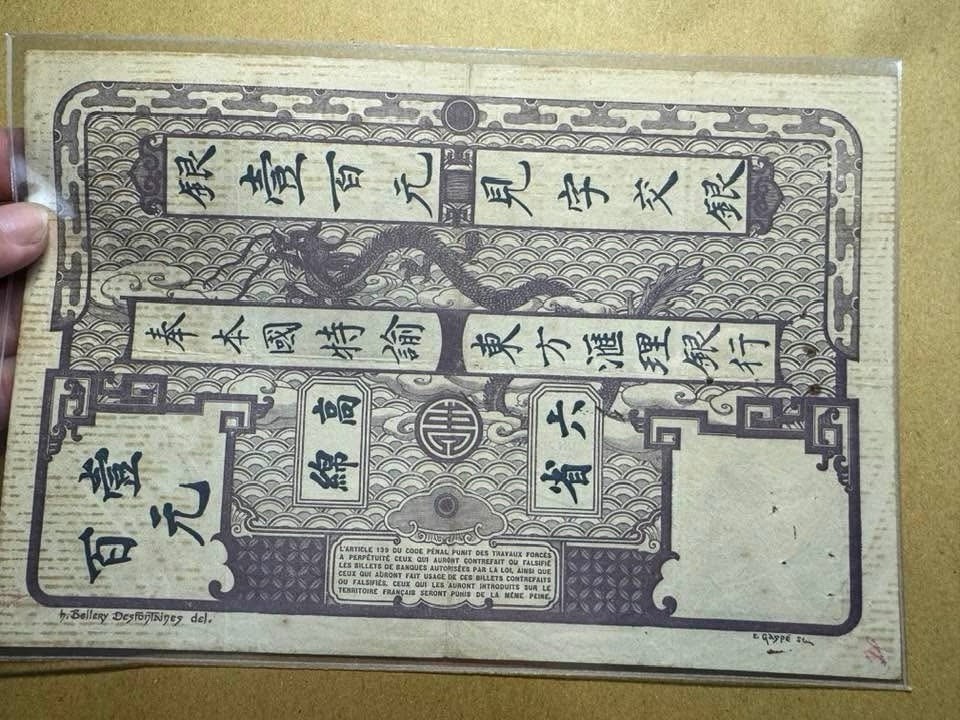 銀壹百元
見字交銀
奉本國特諭
東方滙理銀行
高綿
六省
壹百元
L'ARTICLE 139 DU CODE PÉNAL PUNIT DES TRAVAUX FORCÉS
A PERPÉTUITÉ CEUX QUI AURONT CONTREFAIT OU FALSIFIÉ
LES BILLETS DE BANQUES AUTORISÉES PAR LA LOI, AINSI QUE
CEUX QUI AURONT FAIT USAGE DE CES BILLETS CONTREFAITS
OU FALSIFIÉS. CEUX QUI LES AURONT INTRODUITS SUR LE
TERRITOIRE FRANÇAIS SERONT PUNIS DE LA MÊME PEINE.
h. Bellery Desfontaines del.
E. Gaspé sc.